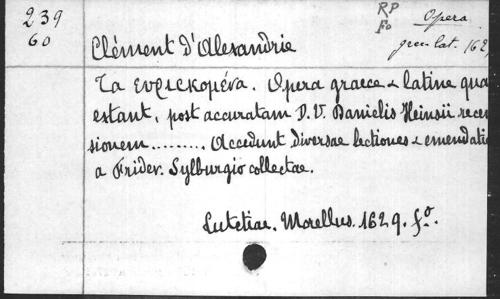 239
60
RP
Fo
Opera
graec lat. 162
Clément d'Alexandrie
Τα ευρισκομένα. Opera graece & latine qua
extant, post accuratam D. V. Danielis Heinsii recen
sionem......... Accedunt diversae lectiones & emendati
a Frider. Sylburgio collectae.
Lutetiae. Morellus. 1629. fo.